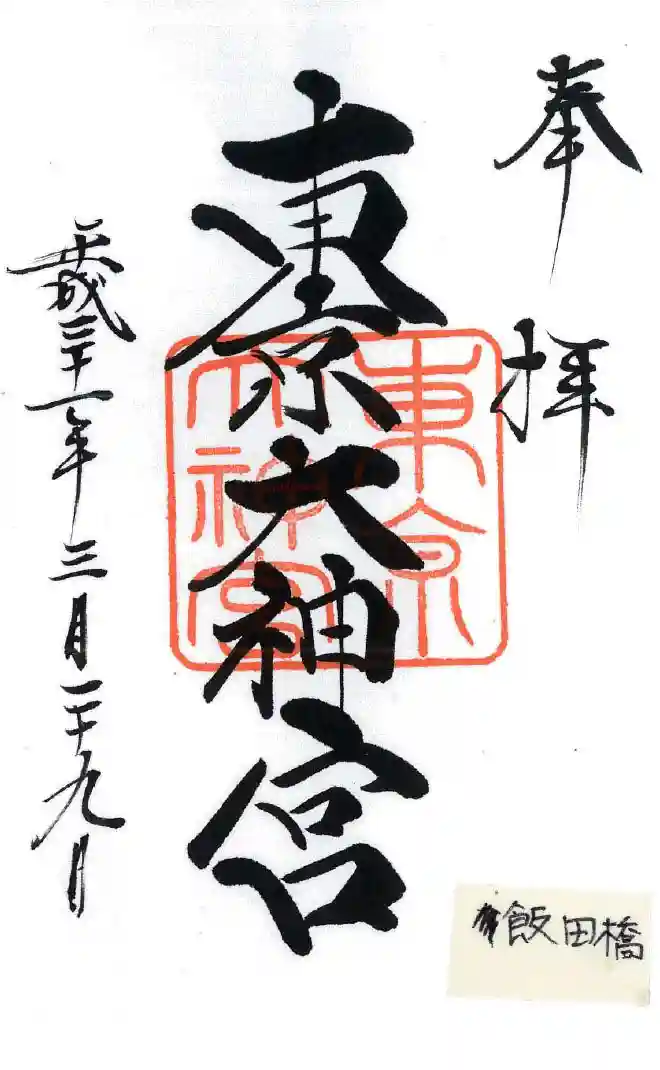 奉拝
東京大神宮
東京
大神宮
平成三十一年三月二十九日
飯田橋